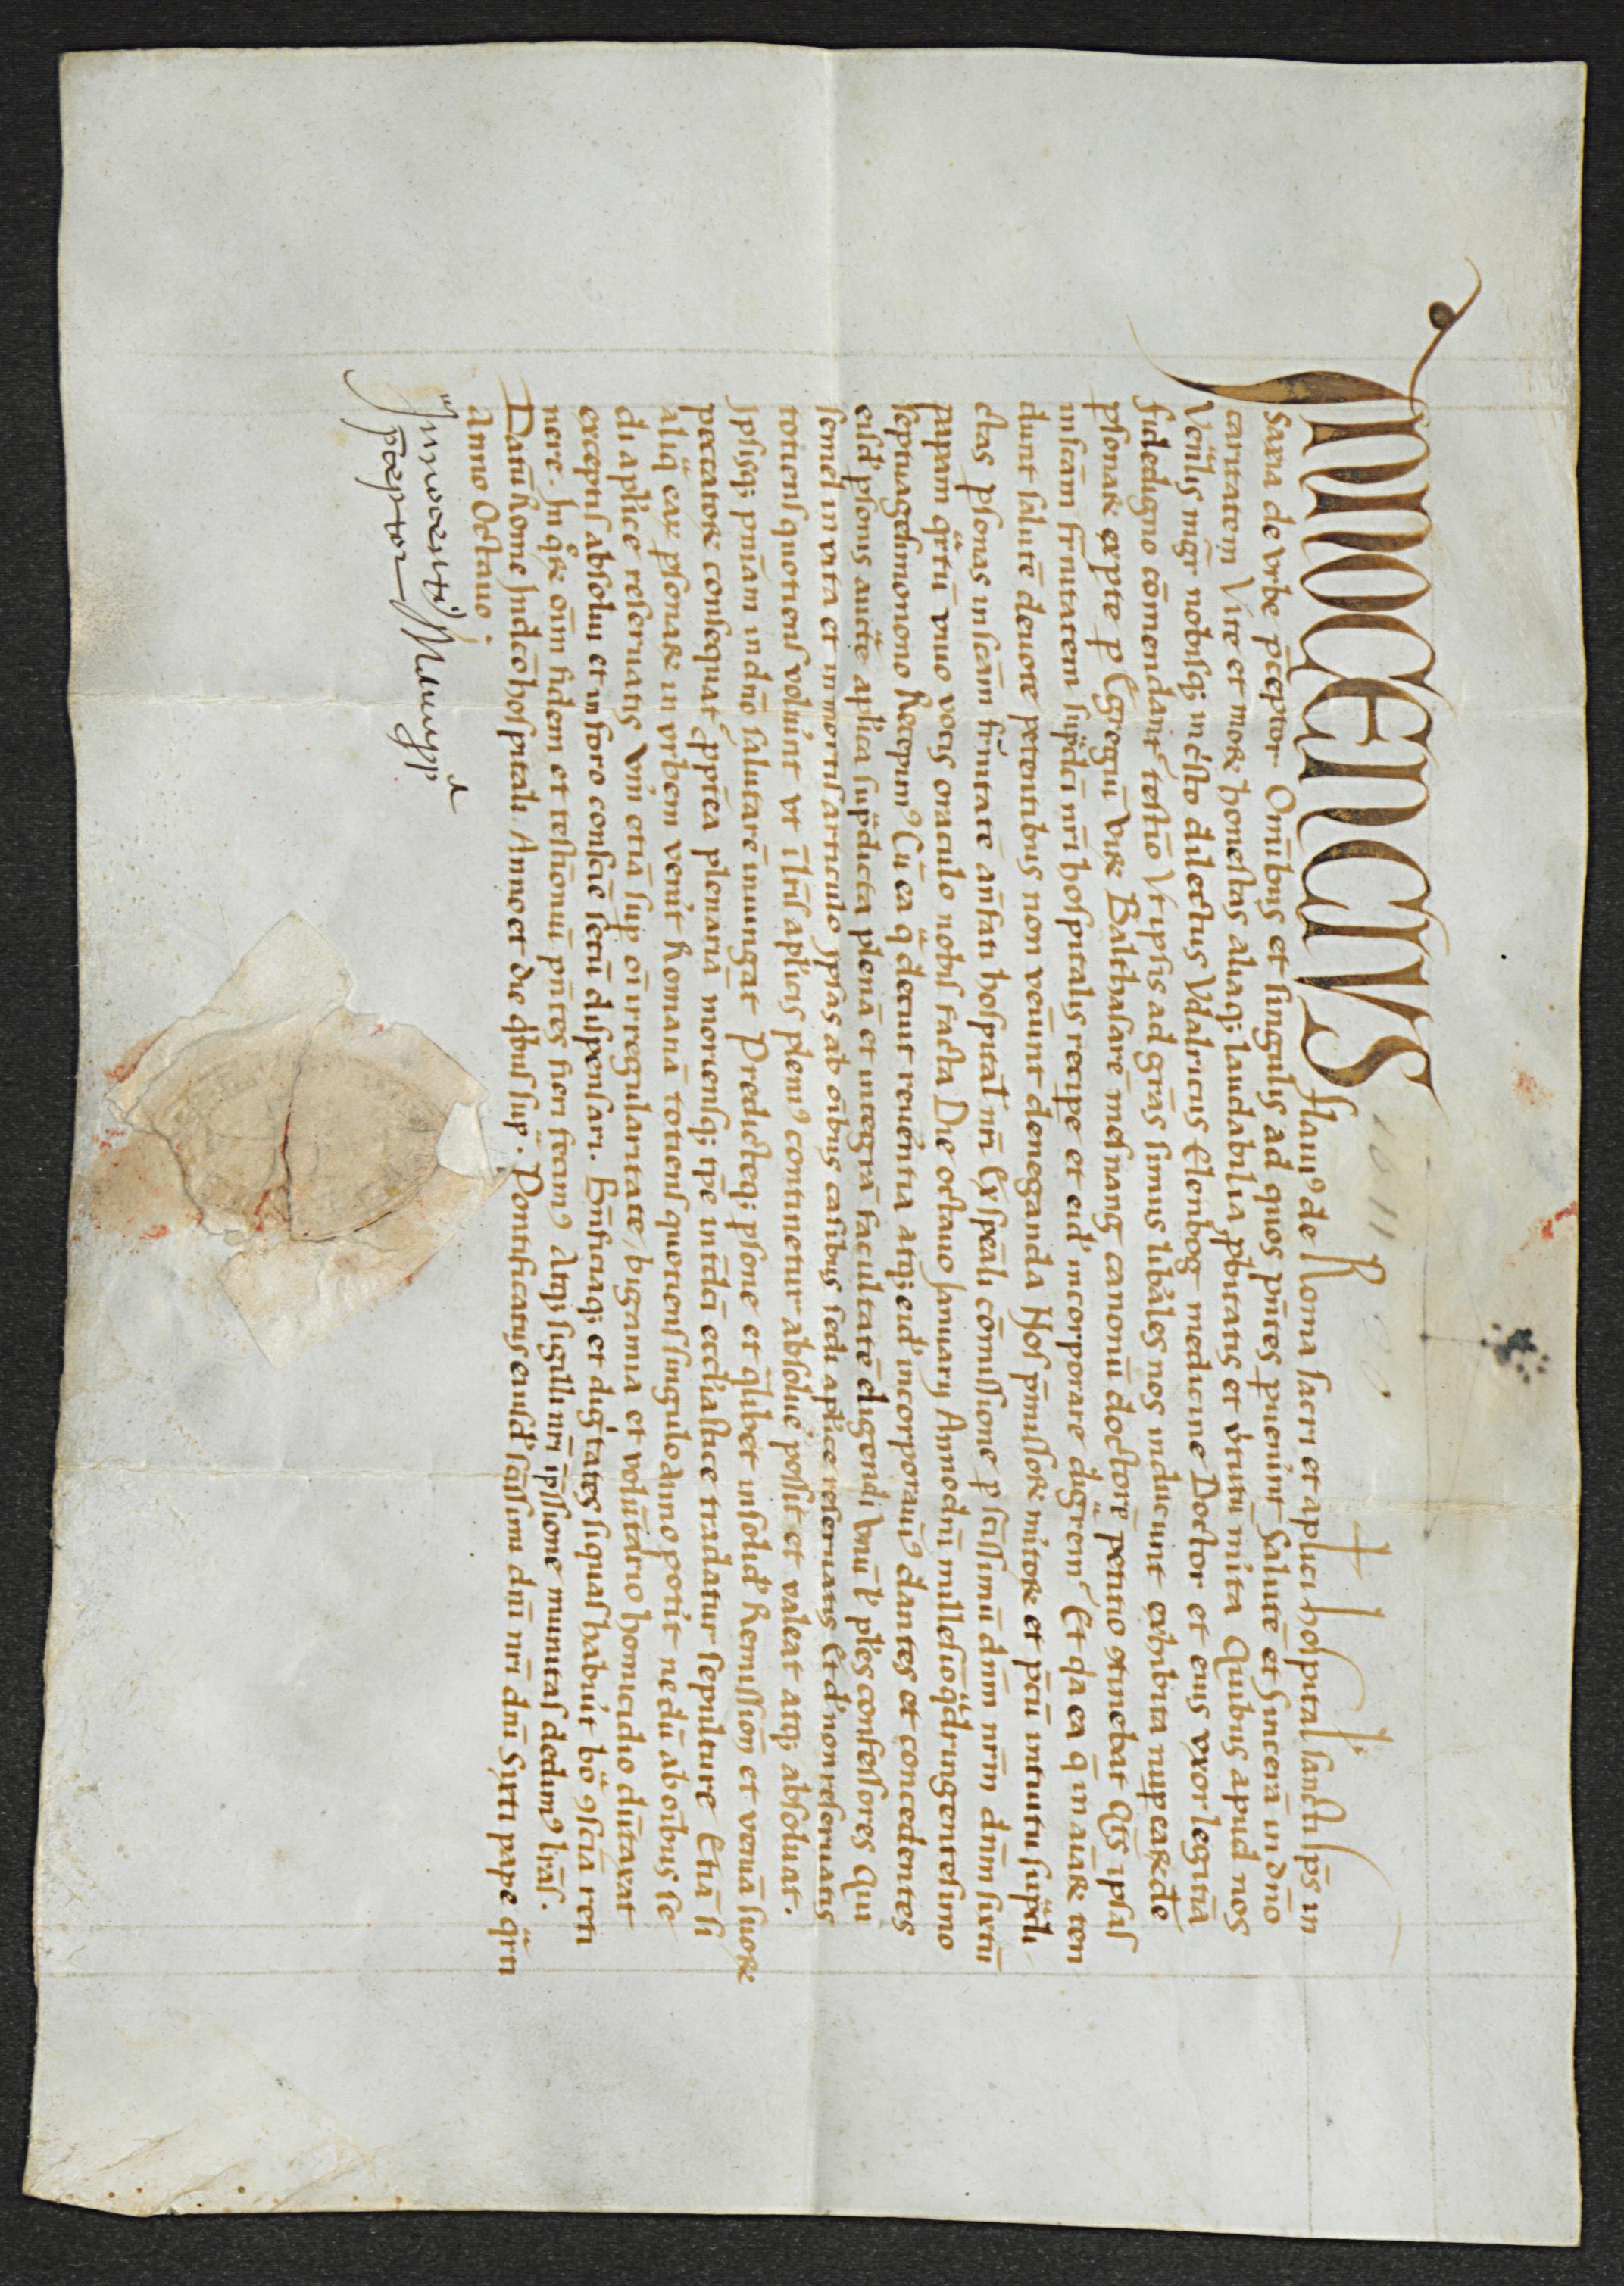 InnoCenCius flaui9 de Roma sacri et aplici hospital sancti sp̄s in
saxia de vrbe p̄ceptor Om̄ibus et singulis ad quos pn̄tes puenint Salutē et sincerā in dn̄o
caritatem Vite et moꝝ honestas aliaq; laudabilia pbitatis et v̓tutū mi̓ta Quibus apud nos
Ven̓lis mgr̄ nobilisq; dilectus Vdalricus Elenbog medicine Doctor et eius vxor legitiā
fidedigno cōmendant̓ testīo Vt ipsis ad gr̄as simus lib̓ales nos inducunt exhibita nup eaꝝde
psonaꝝ exp̱te p Egregiū viꝝ Balthasarē mesnang canonū doctorē petitio ꝯtinebat Qt̄s ipsas
in scām frn̄itatem sup̄dc̄i nr̄i hospitalis recipe et eisd̓ incorporare dig̓rem̓ Et qa ea q̄ in aīaꝝ ten
dunt salutē deuote petentibus non veniūt deneganda Nos p̄missoꝝ mi̓toꝝ et p̄cū intuitu sup̄
ctas psonas in scām frn̓itatē an̄sati hospital̓ nr̄i Ex sp̄ali cōmissione p sc̄issimū dnm̄ nr̄m dnm̄ sixtū
papam qr̓tū viuo vocis oraculo nobis facta Die octauo Januarij Anno dn̄i millesīo q̓dringentesimo
septuagesimonono Recepim9 Cū ea q̓ decuit reu̓entia atq; eisd̓ incorporauim9 dantes et concedentes
eisd̓ psonis aucte aplica sup̄dicta plenā et integrā facultatē eligendi vnū l̓ ples confessores Qui
semel in vita et in mortis articulo ipsas ab oībus casibus sedi aplice reseruatis Et d̓ non reseruatis
totiens quotiens voluint vt īlris aplicis plenī9 continetur absolu̓e possit et valeat atq; absoluat.
Ipsisq; pniām in dn̄o salutarē iniungat Predicteq; psone et q̄libet insolid̓ Remissionē et veniā suoꝝ
peccatoꝝ consequat̓ ppt̄ea plenariā moriensq; tpe int̓dci ecclīastice tradatur sepulture Etiā si
aliq̄ eaꝝ psonaꝝ in vrbem venit Romanā totiens quotiens singulo anno potit nedū ab oībus se
di aplice reseruatis Vn̄i etiā sup oī irregularitate, bigamia et volūtario homicidio dūtaxat
exceptis absolui et in foro consciē secū dispensari. Bn̄ficiaq; et dig̓tates siquas habūit bō ꝯsciā reti
nere. In qr̓ꝝ oīm fidem et testimoniū pn̄tes fieri fecim9 Atq; sigilli nr̄i īpssione munitas dedim9 lr̄as.
Datū Rome In dc̄o hospitali Anno et die qbus sup̄. Pontificatus eiusd̓ sc̄issimi dn̄i nr̄i dn̄i Sixti pape qr̓ti
Anno Octauo.
Innocenti9
p̄ceptor
1611